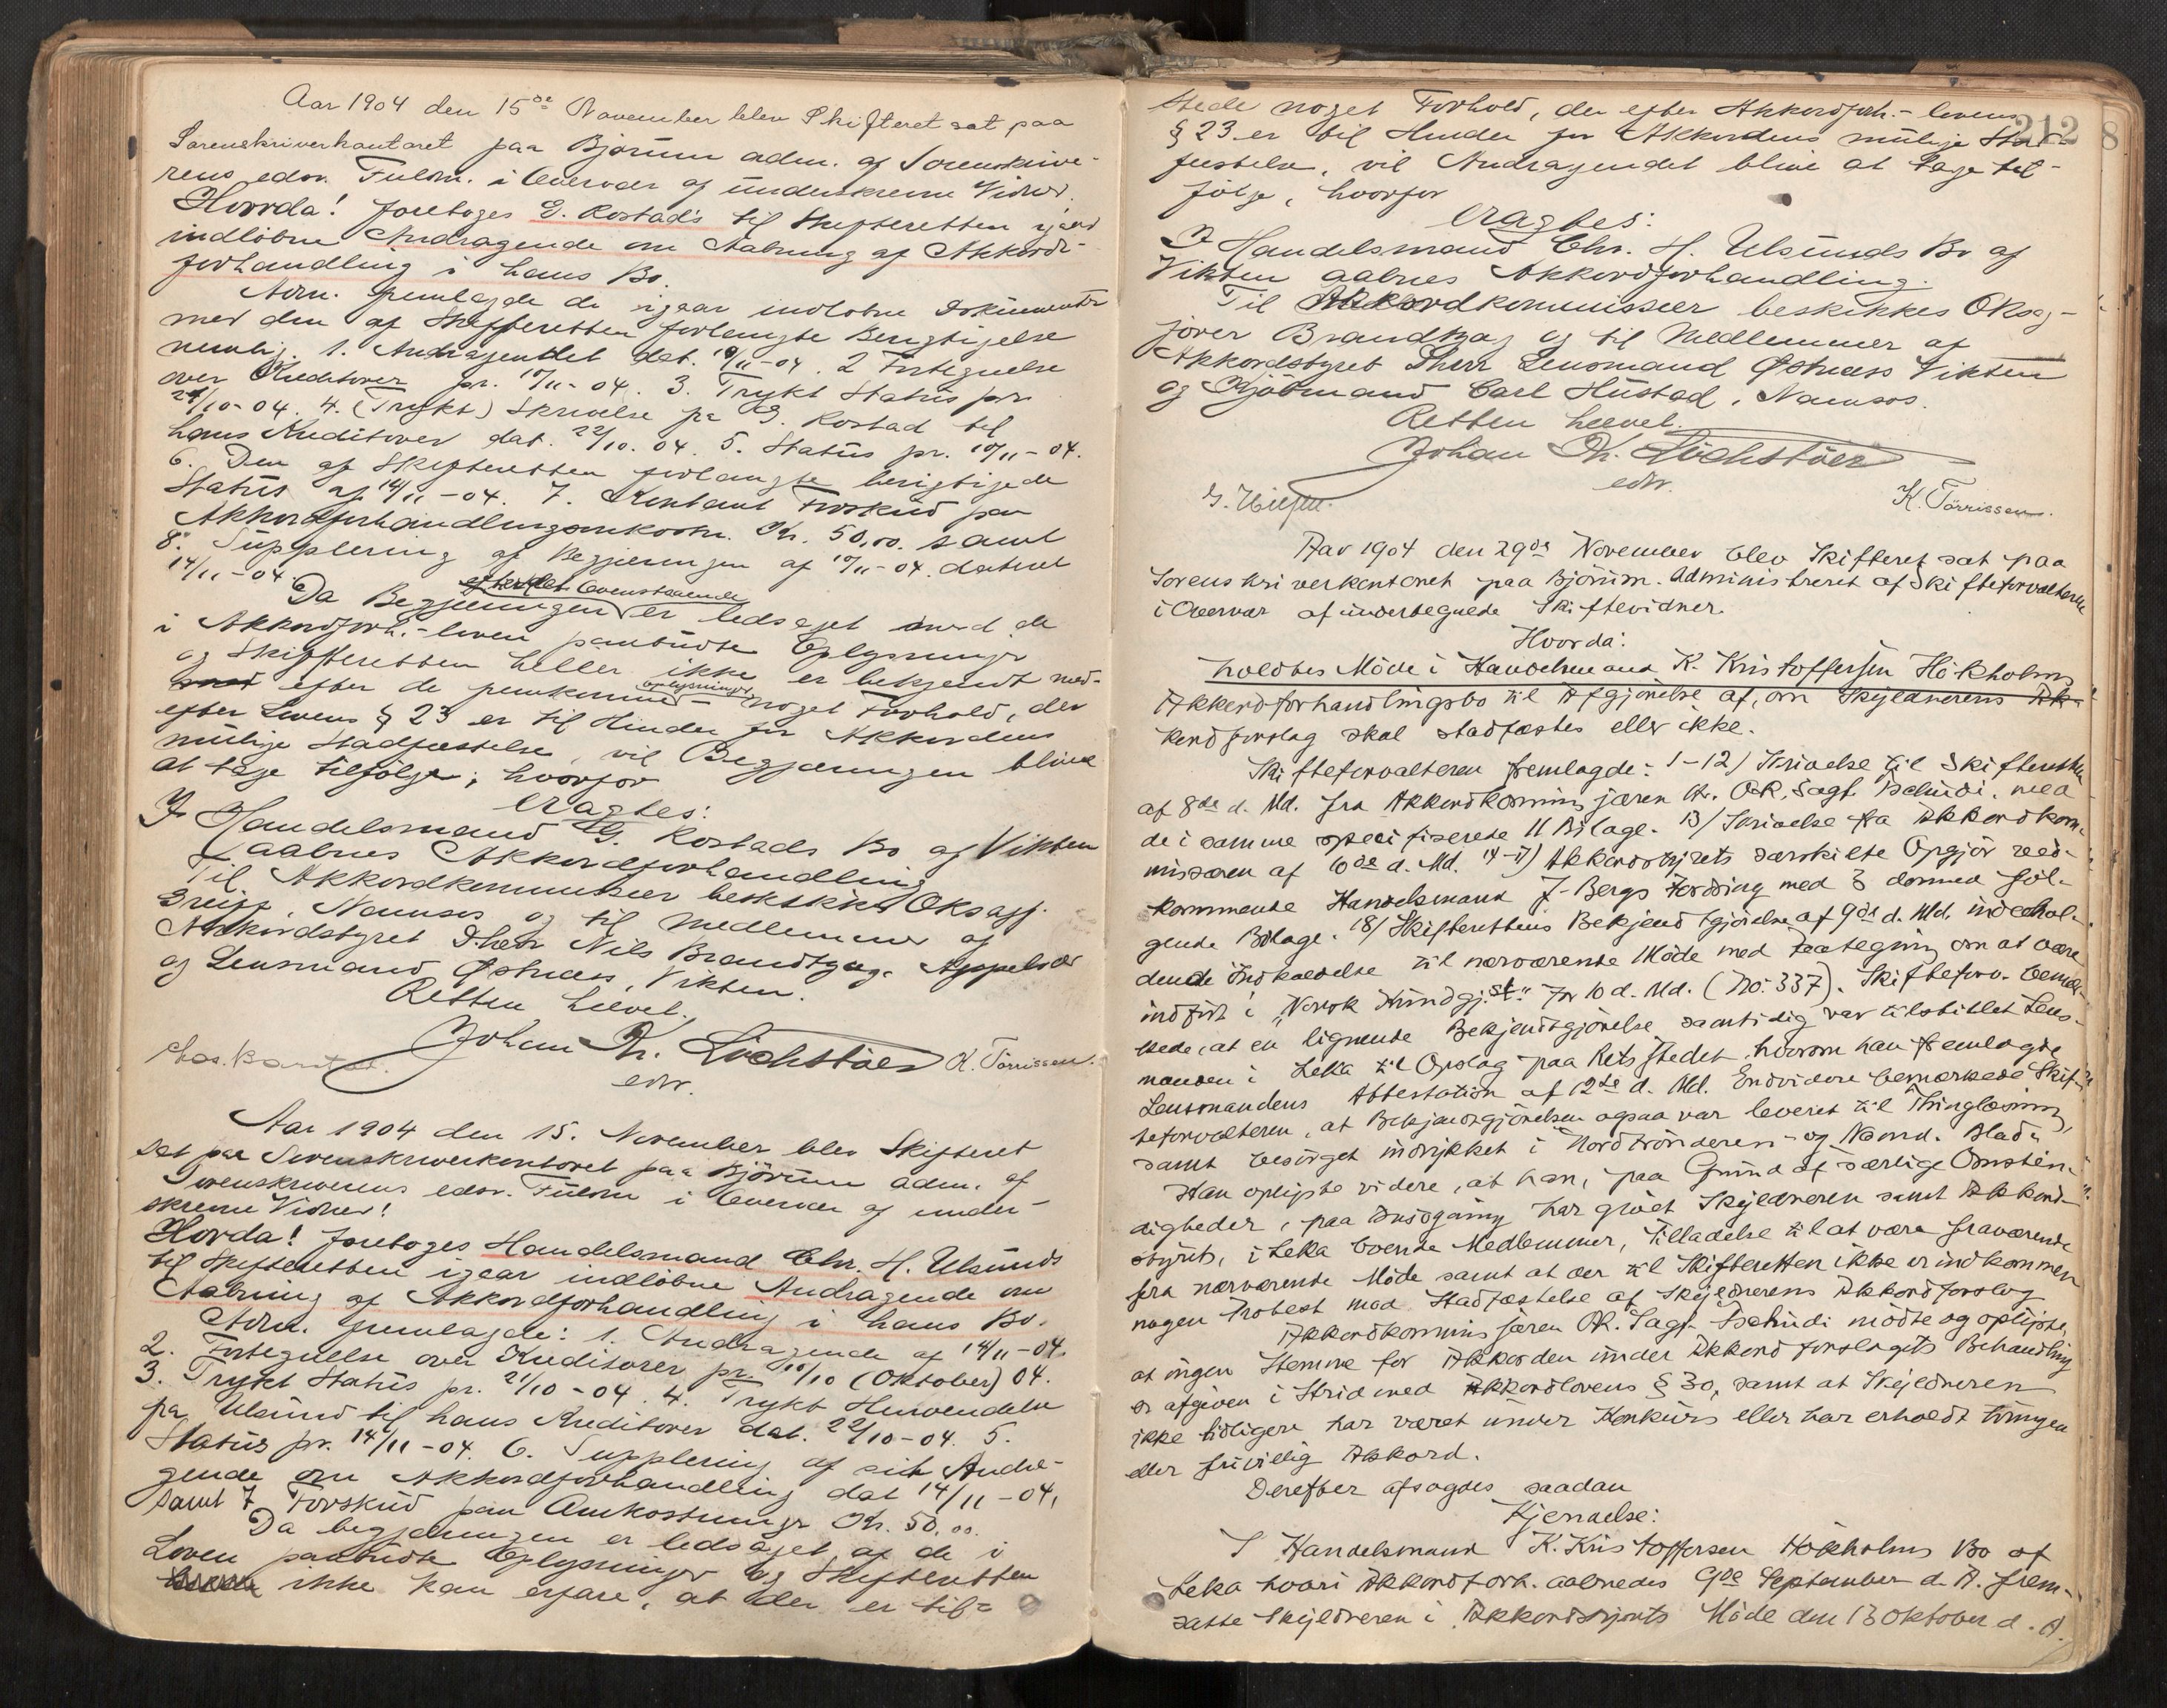 Aar 1904 den 15de November blev Skifteret sat paa
Sorenskriverkontoret paa Bjørum adm. af Sorenskrive-
rens edsv. Fuldm. i Overvær af underskrevne Vidner.
Hvorda! foretoges G. Rostads til Skifteretten igaar
indløbne Andragende om Aabning af Akkord-
forhandling i hans Bo.
Adm. fremlagde de igaar indløbne Dokumenter
med den af Skifteretten forlangte Berigtigelse
nemlig. 1. Andragendet dat. 10/11-04. 2 Fortegnelse
over Kreditorer pr. 10/11-04. 3. Trykt Status pr.
21/10-04. 4. (Trykt) Skrivelse fra G. Rostad til
hans Kreditorer dat. 22/10.04. 5. Status pr. 10/11-04.
6. Den af Skifteretten forlangte berigtigede
Status af 14/11-04. 7. Kontant Forskud paa
Akkordforhandlingsomkostn. Kr. 50,00. samt
8. Supplering af Begjæringen af 10/11-04. dateret
14/11-04.
efter det Ovenstaaende
Da Begjæringen er ledsaget med de
i Akkordforh.-loven paabudte Oplysninger
og Skifteretten heller ikke er bekjendt med
efter de fremkomne oplysninger noget Forhold, der
efter Lovens § 23 er til Hinder for Akkordens
mulige Stadfæstelse, vil Begjæringen blive
at tage tilfølge; hvorfor
eragtes:
I Handelsmand G. Rostads Bo af Vikten
aabnes Akkordforhandling.
Til Akkordkommissær beskikkes Oksagf.
Greiff, Namsos og til Medlemmer af
Akkordstyret Dherr Nils Brandtzæg, Appelvær
og Lensmand Østnæs, Vikten.
Retten hævet.
Johan Kr. Lochstöer
edsv.
K. Tørrissen.
Aar 1904 den 15. November blev Skifteret
sat paa Sorenskriverkontoret paa Bjørum adm. af
Sorenskriverens edsv. Fuldm. i Overvær af under-
skrevne Vidner!
Hvorda! foretoges Handelsmand Chr. H. Ulsunds
til Skifteretten igaar indløbne Andragende om
Aabning af Akkordforhandling i hans Bo.
Adm. fremlagde: 1. Andragende af 14/11-04.
2. Fortegnelse over Kreditorer pr. 10/10 (Oktober) 04.
3. Trykt Status pr. 21/10-04. 4. Trykt Henvendelse
fra Ulsund til hans Kreditorer dat. 22/10-04. 5.
Status pr. 14/11-04. 6. Supplering af sit Andra-
gende om Akkordforhandling dat 14/11-04,
samt 7 Forskud paa Omkostninger Kr. 50,00.
Da begjæringen er ledsaget af de i
Loven paabudte Oplysninger og Skifteretten
ikke kan erfare, at der er til-
212
8
stede noget Forhold, der efter Akkordforh.-lovens
§ 23 er til Hinder for Akkordens mulige Stad-
fæstelse, vil Andragendet blive at tage til-
følge, hvorfor
eragtes:
I Handelsmand Chr. H. Ulsunds Bo af
Vikten aabnes Akkordforhandling.
Til Akkordkommissær beskikkes Oksag-
fører Brandtzæg og til Medlemmer af
Akkordstyret Dherr Lensmand Østnæss Vikten
og Kjøbmand Carl Hustad, Namsos.
Retten hævet.
Johan Kr. Lochstöer
edsv.
K. Tørrissen.
Aar 1904 den 29de November blev Skifteret sat paa
Sorenskriverkontoret paa Bjørum. Administreret af Skifteforvalteren
i Overvær af undertegnede Skiftevidner.
Hvorda:
holdtes Møde i Handelsmand K. Kristoffersen Hökholms
Akkordforhandlingsbo til Afgjørelse af, om Skyldnerens Ak-
kordforslag skal stadfæstes eller ikke.
Skifteforvalteren fremlagde: 1-12) Skrivelse til Skifteretten
af 8de d. Md. fra Akkordkommissæren Hr. O.R. Sagf. Tschudi, med
de i samme specifiserede 11 Bilage. 13/ Skrivelse fra Akkordkom-
missæren af 10de d. Md. 14-17) Akkordstyrets særskilte Opgjør ved-
kommende Handelsmand J. Bergs Fordring med 3 dermed föl-
gende Bilage. 18/ Skifterettens Bekjendtgjørelse af 9de d. Md. indehol-
dende Indkaldelse til nærværende Møde med Paategning om at være
indført i „Norsk Kundgj.st." for 10 d. Md. (No: 337). Skifteforv. bemær-
kede, at en lignende Bekjendtgjørelse samtidig var tilstillet Lens-
manden i Leka til Opslag paa Retsstedet, hvorom han fremlagde
Lensmandens Attestation af 12te d. Md. Endvidere bemærkede Skif-
teforvalteren, at Bekjendtgjørelsen ogsaa var leveret til Thinglæsning,
samt besørget indrykket i Nordtrønderen- og Namd. Blad.
Han oplyste videre, at han, paa Grund af særlige Omstæn-
digheder, paa Ansøgning har givet Skyldneren samt Akkord-
styrets, i Leka boende Medlemmer, Tilladelse til at være fraværende
fra nærværende Møde samt at der til Skifteretten ikke er indkommen
nogen Protest mod Stadfæstelse af Skyldnerens Akkordforslag
Akkordkommissæren OR. Sagf. Tschudi mødte og oplyste,
at ingen Stemme for Akkorden under Akkordforslagets Behandling
er afgiven i Strid med Akkordlovens § 30, samt at Skyldneren
ikke tidligere har været under Konkurs eller har erholdt tvungen
eller frivillig Akkord.
Derefter afsagdes saadan
Kjendelse:
I Handelsmand K. Kristoffersen Hökholms Bo af
Leka hvori Akkordforh. aabnedes 9de September d. A. frem-
satte Skyldneren i Akkordstyrets Møde den 13 Oktober d. A.